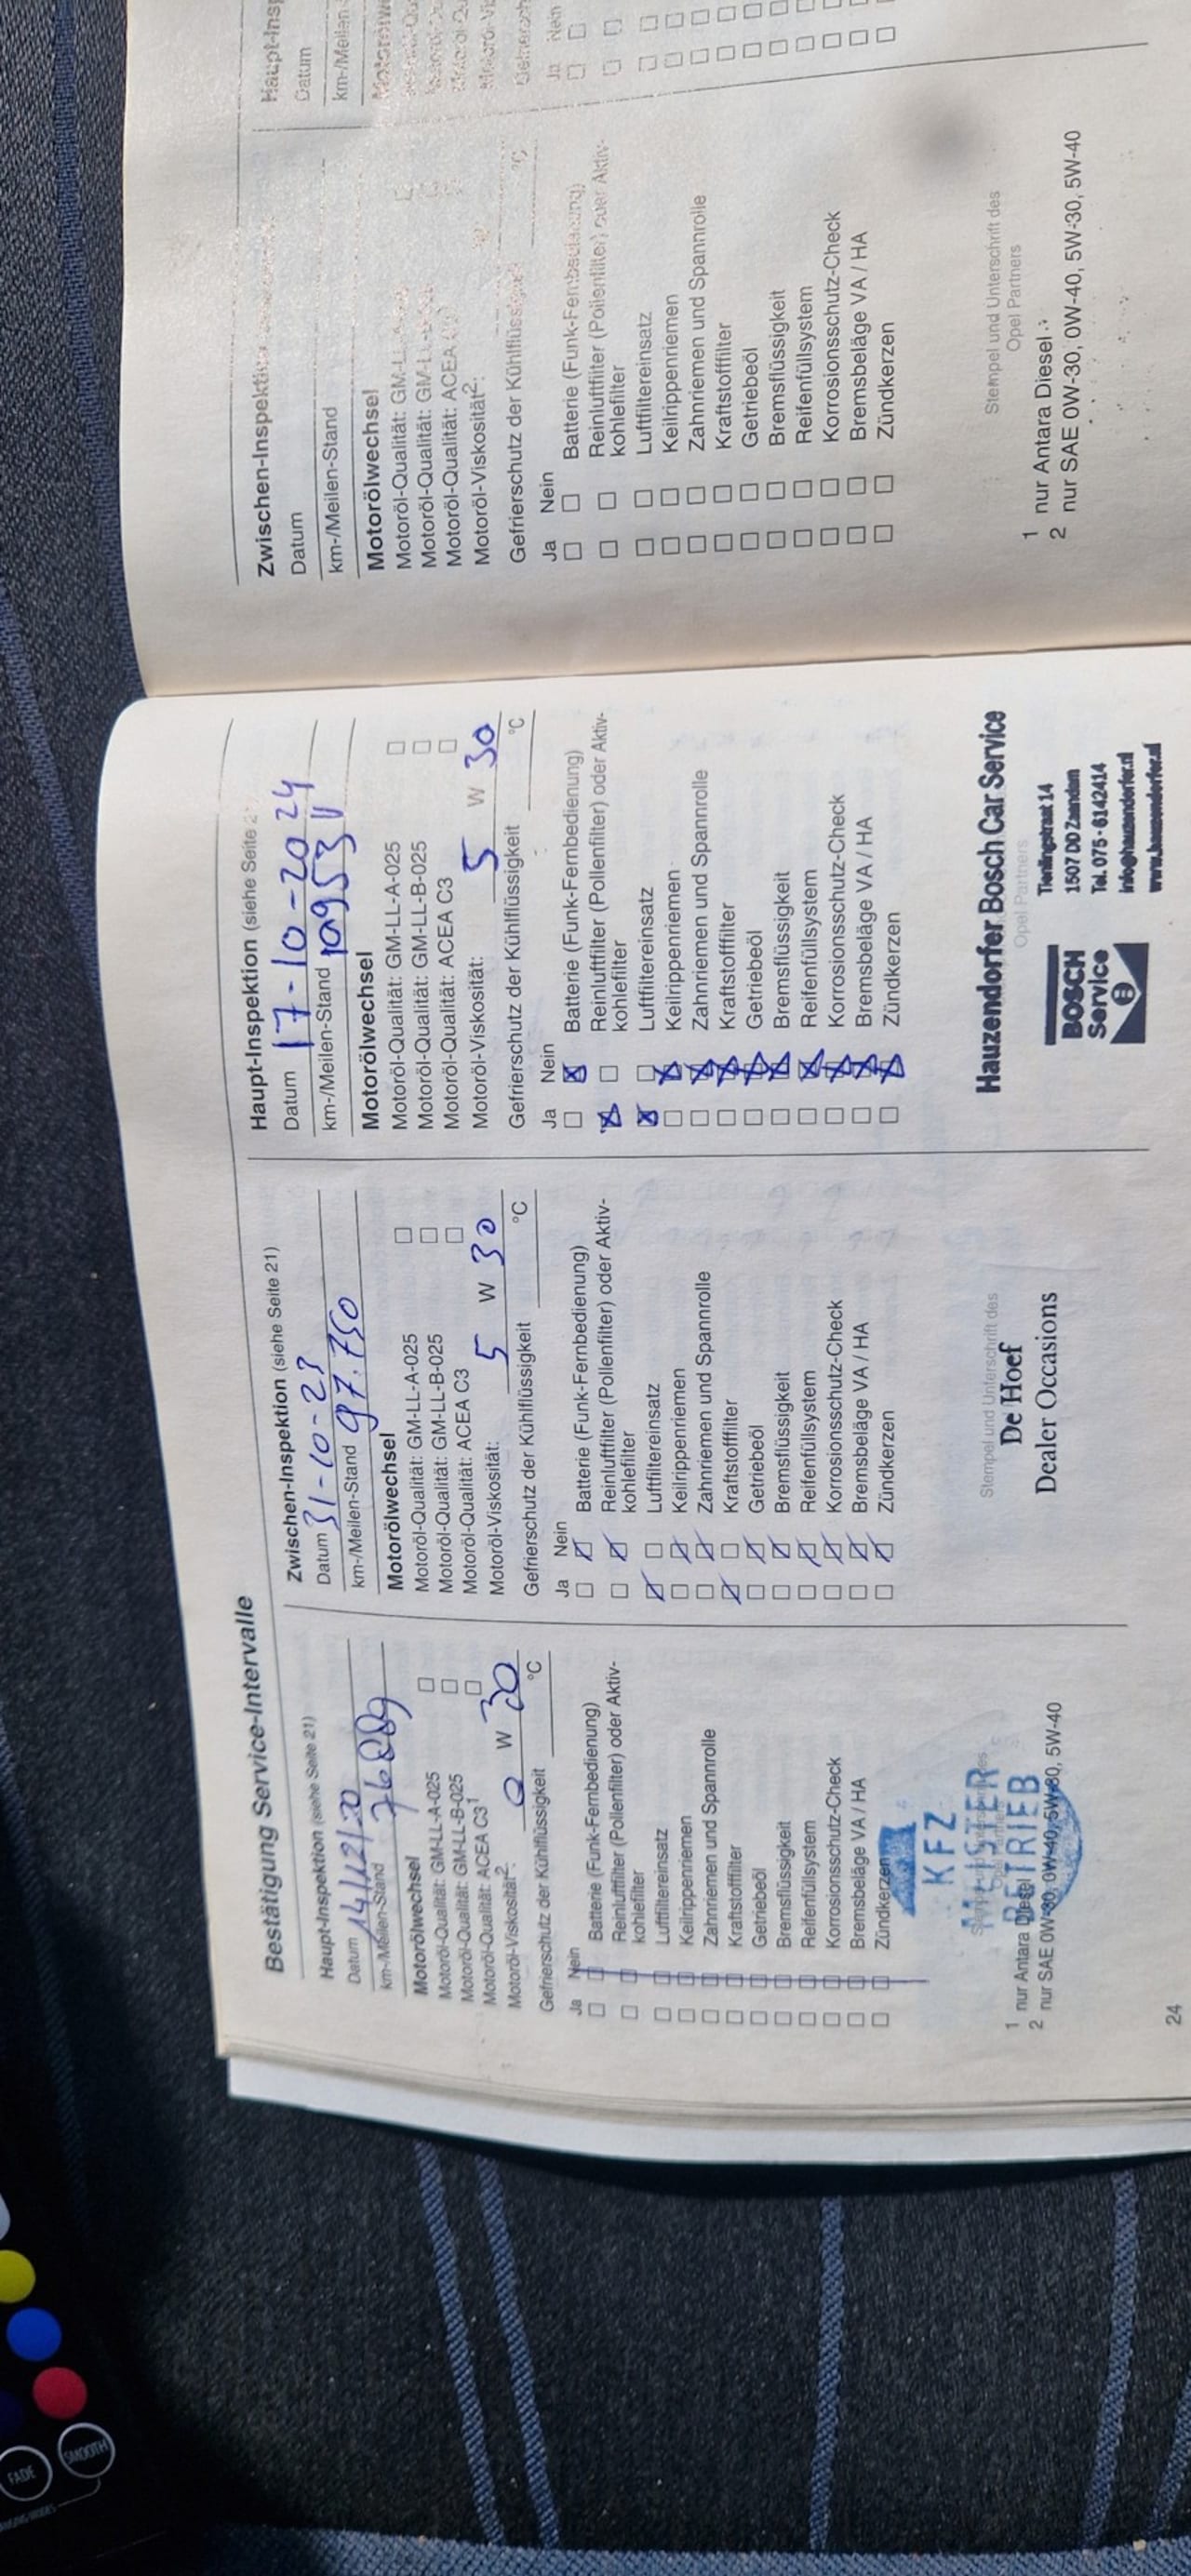 Bestätigung Service-Intervalle
Haupt-Inspektion (siehe Seite 21)
Datum 14/12/20
km-/Meilen-Stand
Motorölwechsel
Motoröl-Qualität: GM-LL-A-025 □
Motoröl-Qualität: GM-LL-B-025 □
Motoröl-Qualität: ACEA C3¹ □
Motoröl-Viskosität²: 0 W 30
Gefrierschutz der Kühlflüssigkeit °C
Ja Nein
Batterie (Funk-Fernbedienung)
Reinluftfilter (Pollenfilter) oder Aktiv-
kohlefilter
Luftfiltereinsatz
Keilrippenriemen
Zahnriemen und Spannrolle
Kraftstofffilter
Getriebeöl
Bremsflüssigkeit
Reifenfüllsystem
Korrosionsschutz-Check
Bremsbeläge VA / HA
Zündkerzen
KFZ
MEISTER
BETRIEB
1 nur Antara Diesel
2 nur SAE 0W-30, 0W-40, 5W-30, 5W-40
24
Zwischen-Inspektion (siehe Seite 21)
Datum 31-10-23
km-/Meilen-Stand 97.750
Motorölwechsel
Motoröl-Qualität: GM-LL-A-025 □
Motoröl-Qualität: GM-LL-B-025 □
Motoröl-Qualität: ACEA C3 □
Motoröl-Viskosität: 5 W 30
Gefrierschutz der Kühlflüssigkeit °C
Ja Nein
Batterie (Funk-Fernbedienung)
Reinluftfilter (Pollenfilter) oder Aktiv-
kohlefilter
Luftfiltereinsatz
Keilrippenriemen
Zahnriemen und Spannrolle
Kraftstofffilter
Getriebeöl
Bremsflüssigkeit
Reifenfüllsystem
Korrosionsschutz-Check
Bremsbeläge VA / HA
Zündkerzen
Stempel und Unterschrift des
De Hoef
Dealer Occasions
Haupt-Inspektion (siehe Seite
Datum 17-10-2024
km-/Meilen-Stand
Motorölwechsel
Motoröl-Qualität: GM-LL-A-025 □
Motoröl-Qualität: GM-LL-B-025 □
Motoröl-Qualität: ACEA C3 □
Motoröl-Viskosität: 5 W 30
Gefrierschutz der Kühlflüssigkeit °C
Ja Nein
Batterie (Funk-Fernbedienung)
Reinluftfilter (Pollenfilter) oder Aktiv-
kohlefilter
Luftfiltereinsatz
Keilrippenriemen
Zahnriemen und Spannrolle
Kraftstofffilter
Getriebeöl
Bremsflüssigkeit
Reifenfüllsystem
Korrosionsschutz-Check
Bremsbeläge VA / HA
Zündkerzen
Hauzendorfer Bosch Car Service
Opel Partners
BOSCH
Service
1507 DD Zaandam
Tel. 075 - 6142414
info@hauzendorfer.nl
www.hauzendorfer.nl
Zwischen-Inspektion
Datum
km-/Meilen-Stand
Motorölwechsel
Motoröl-Qualität: GM-LL-A-025
Motoröl-Qualität: GM-LL-B-025
Motoröl-Qualität: ACEA
Motoröl-Viskosität²:
Gefrierschutz der Kühlflüssigkeit °C
Ja Nein
Batterie (Funk-Fernbedienung)
Reinluftfilter (Pollenfilter) oder Aktiv-
kohlefilter
Luftfiltereinsatz
Keilrippenriemen
Zahnriemen und Spannrolle
Kraftstofffilter
Getriebeöl
Bremsflüssigkeit
Reifenfüllsystem
Korrosionsschutz-Check
Bremsbeläge VA / HA
Zündkerzen
Stempel und Unterschrift des
Opel Partners
1 nur Antara Diesel
2 nur SAE 0W-30, 0W-40, 5W-30, 5W-40
Haupt-Insp
Datum
km-/Meilen-
Ja Nein
FADE
SMOOTH